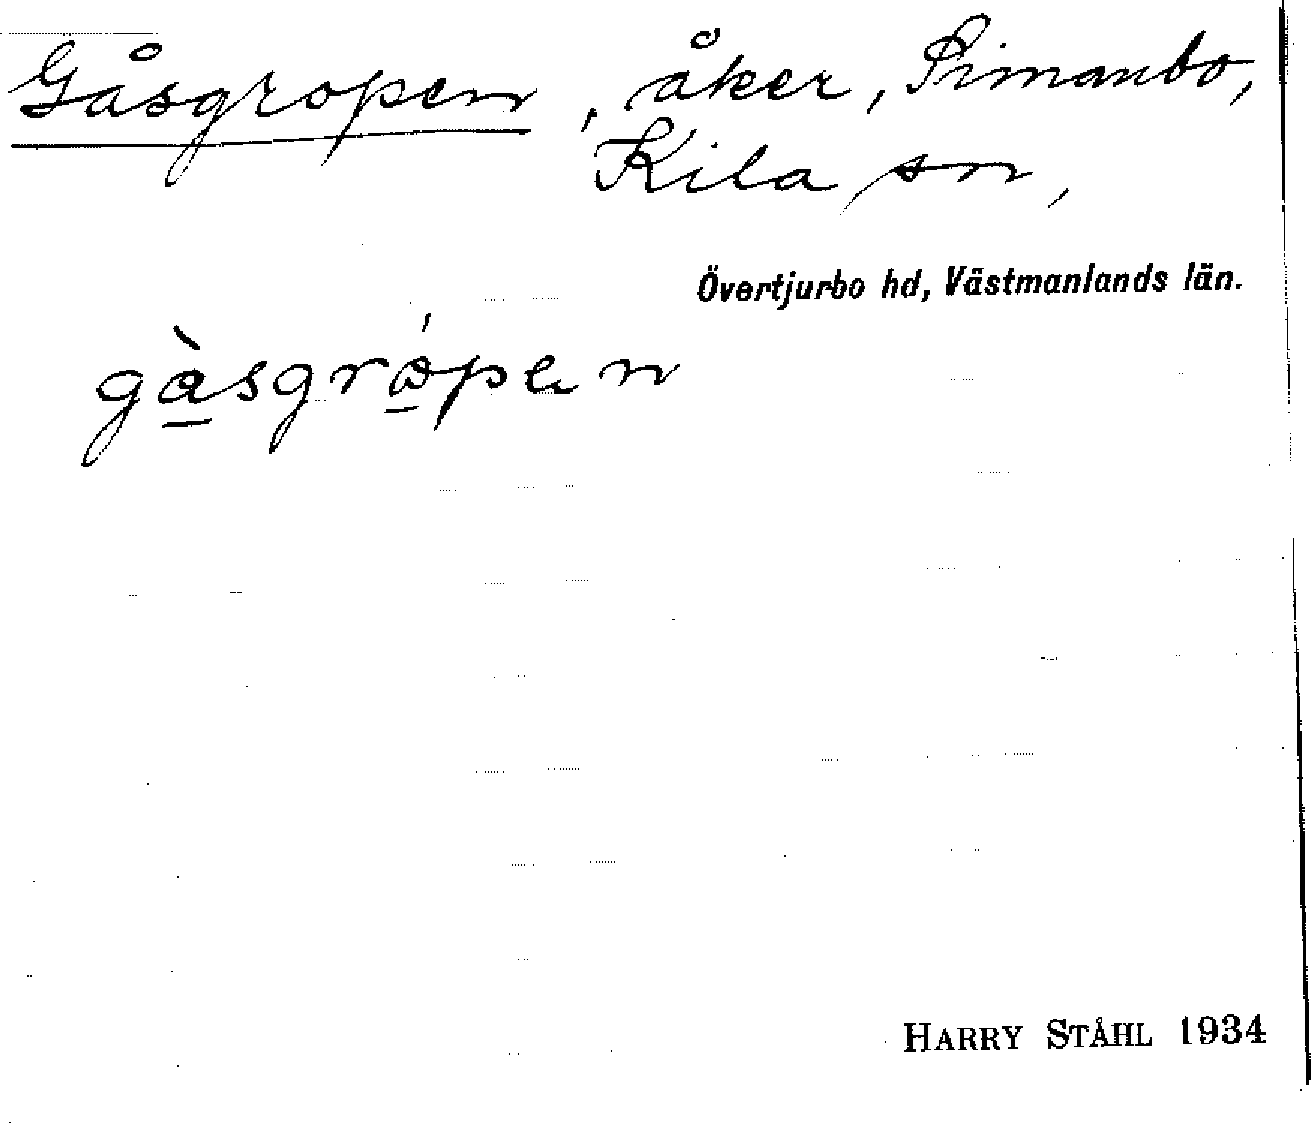 Gåsgropen, åker, Pimanbo,
Kila sn,
Övertjurbo hd, Västmanlands län.
gàsgrópen
HARRY STÅHL 1934